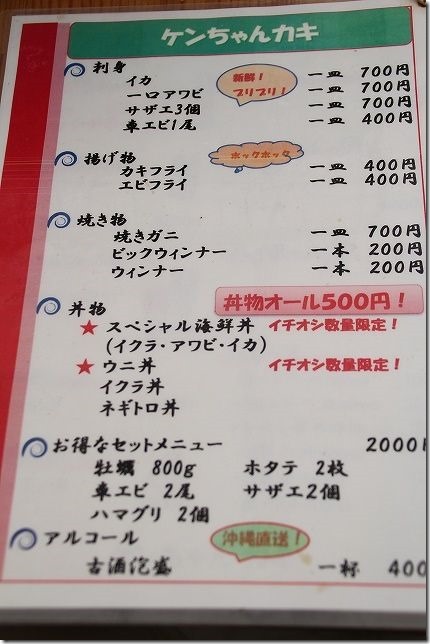 ケンちゃんカキ
刺身
新鮮！
プリプリ！
イカ 一皿 700円
一口アワビ 一皿 700円
サザエ3個 一皿 700円
車エビ1尾 一皿 400円
揚げ物
ホックホック
カキフライ 一皿 400円
エビフライ 一皿 400円
焼き物
焼きガニ 一皿 700円
ビックウィンナー 一本 200円
ウィンナー 一本 200円
丼物
丼物オール500円！
★ スペシャル海鮮丼 イチオシ数量限定！
(イクラ・アワビ・イカ)
★ ウニ丼 イチオシ数量限定！
イクラ丼
ネギトロ丼
お得なセットメニュー 2000
牡蠣 800g ホタテ 2枚
車エビ 2尾 サザエ2個
ハマグリ 2個
アルコール
沖縄直送！
古酒泡盛 一杯 400